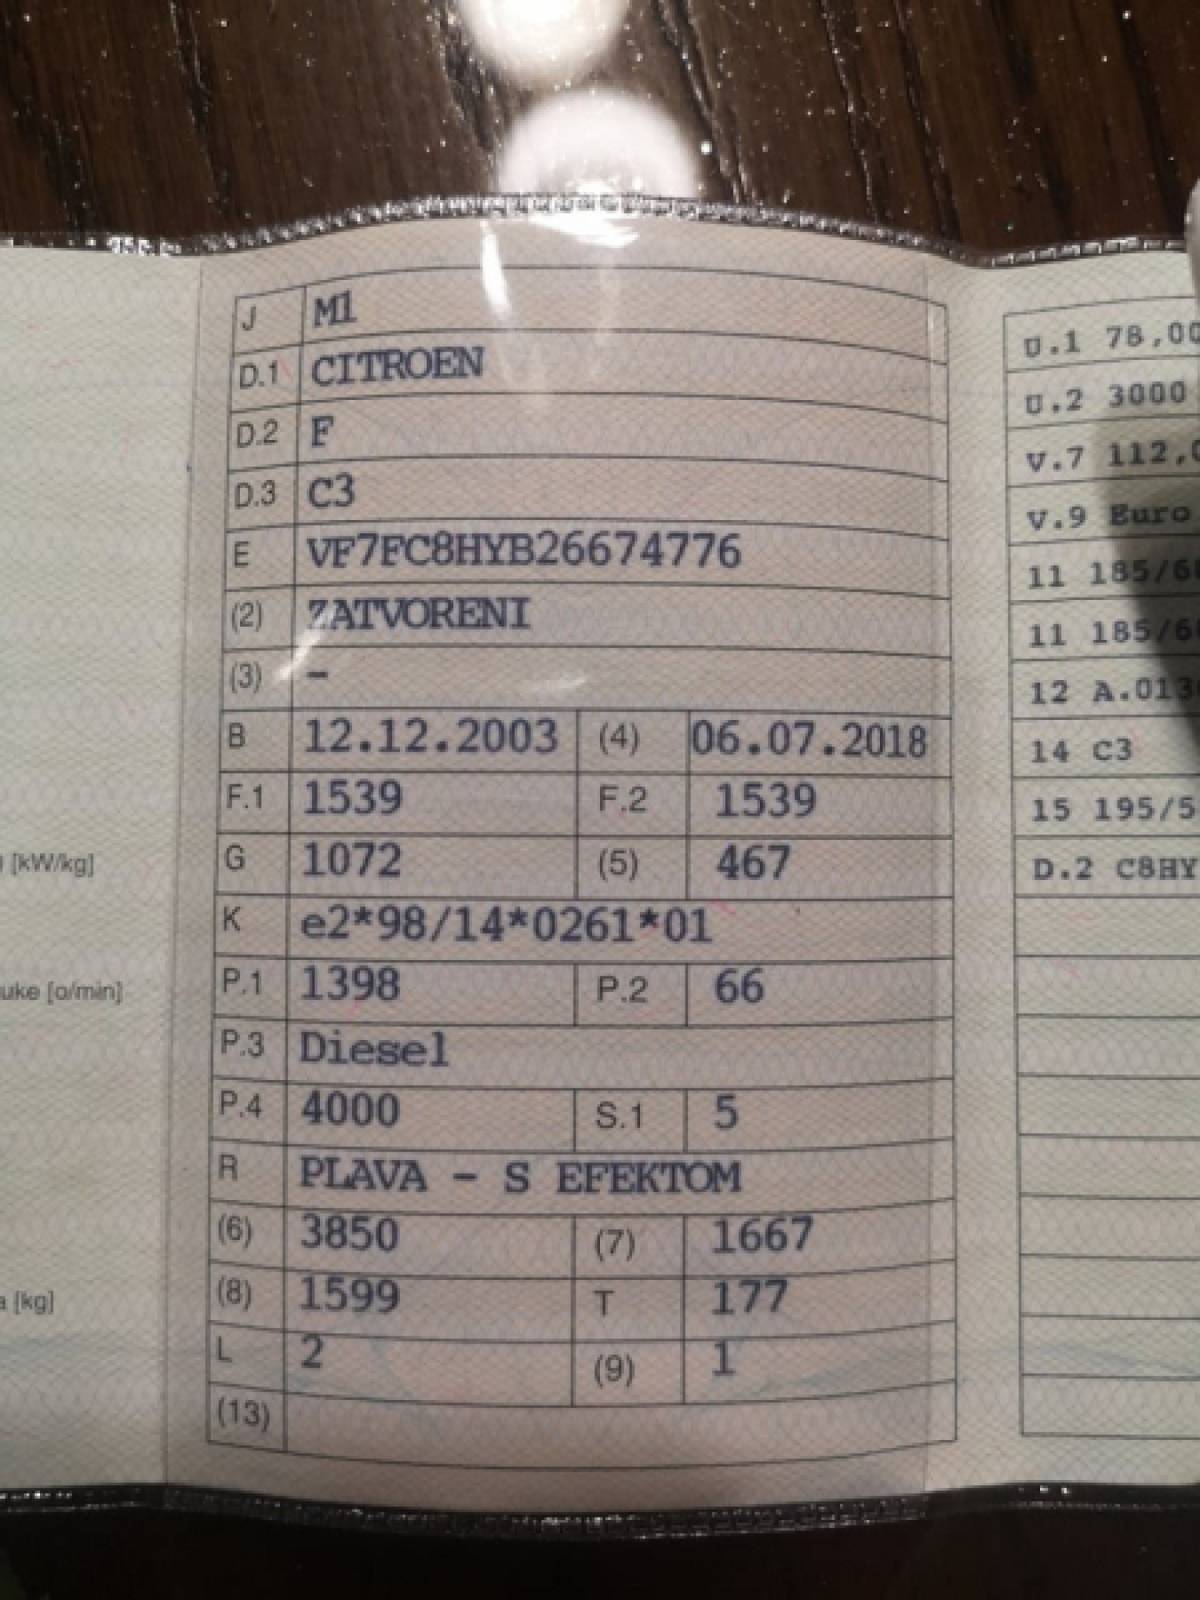 J M1
D.1 CITROEN
D.2 F
D.3 C3
E VF7FC8HYB26674776
(2) ZATVORENI
(3) –
B 12.12.2003 (4) 06.07.2018
F.1 1539 F.2 1539
G 1072 (5) 467
K e2*98/14*0261*01
P.1 1398 P.2 66
P.3 Diesel
P.4 4000 S.1 5
R PLAVA – S EFEKTOM
(6) 3850 (7) 1667
(8) 1599 T 177
L 2 (9) 1
(13)
[kW/kg]
[o/min]
[kg]
U.1 78,00
U.2 3000
V.7 112,0
V.9 Euro
11 185/6
11 185/6
12 A.013
14 C3
15 195/5
D.2 C8HY